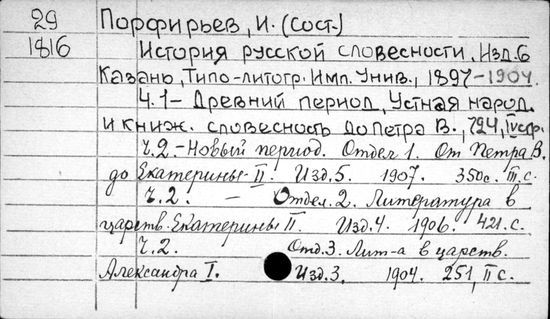 29 Порфирьев, И. (сост.)
1816 История русской словесности. Изд. 6
Казань, Типо-литогр. Имп. Унив., 1897-1904.
Ч.1 - Древний период, Устная народ.
и книж. словесность до Петра В., 724, IV стр.
Ч.2.-Новый период. Отдел 1. От Петра В.
до Екатерины II. Изд. 5. 1907. 350 с. III с.
Ч.2. - Отдел. 2. Литература в
царств. Екатерины II. Изд. 4. 1906. 421. с.
Ч.2. Отд. 3. Лит-а в царств.
Александра I. Изд. 3. 1904. 251, II с.